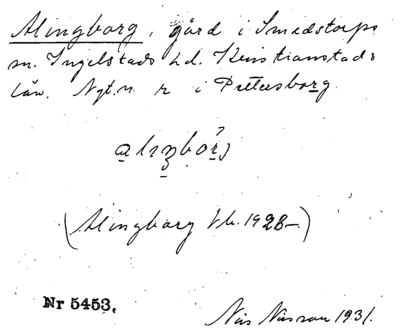 Alingborg, gård i Smedstorps
sn. Ingelstads hd. Kristianstads
län. Ngt. n. r i Petersborg.
(Alingborg tlk. 1928–)
Nr 5453.
Nils Nilsson 1931.